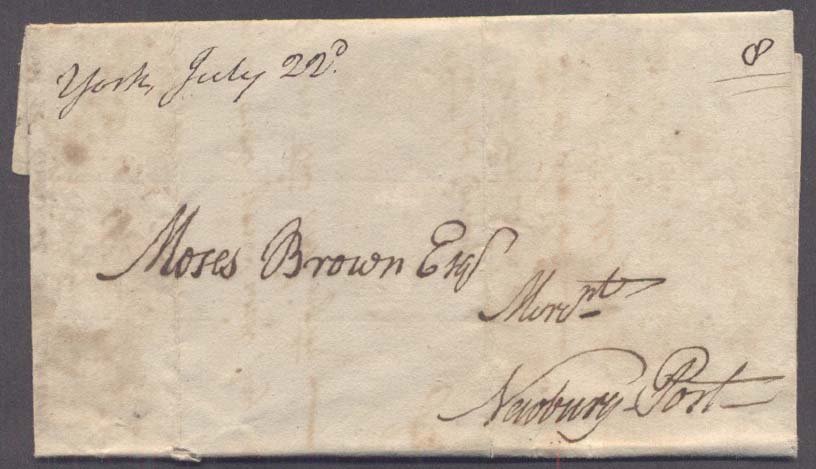 York, July 22d.
8
Moses Brown Esqr
Mercht
Newbury-Port